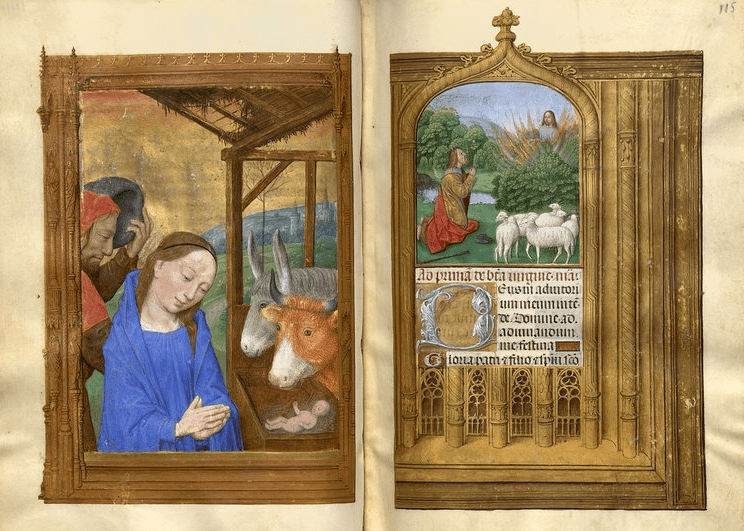 115
Ad primã de btã uirgine ma:
Deus in adiutori
um meum intẽ
de Domine ad
adiuuandum
me festina
Gloria patri et filio et spiri sco